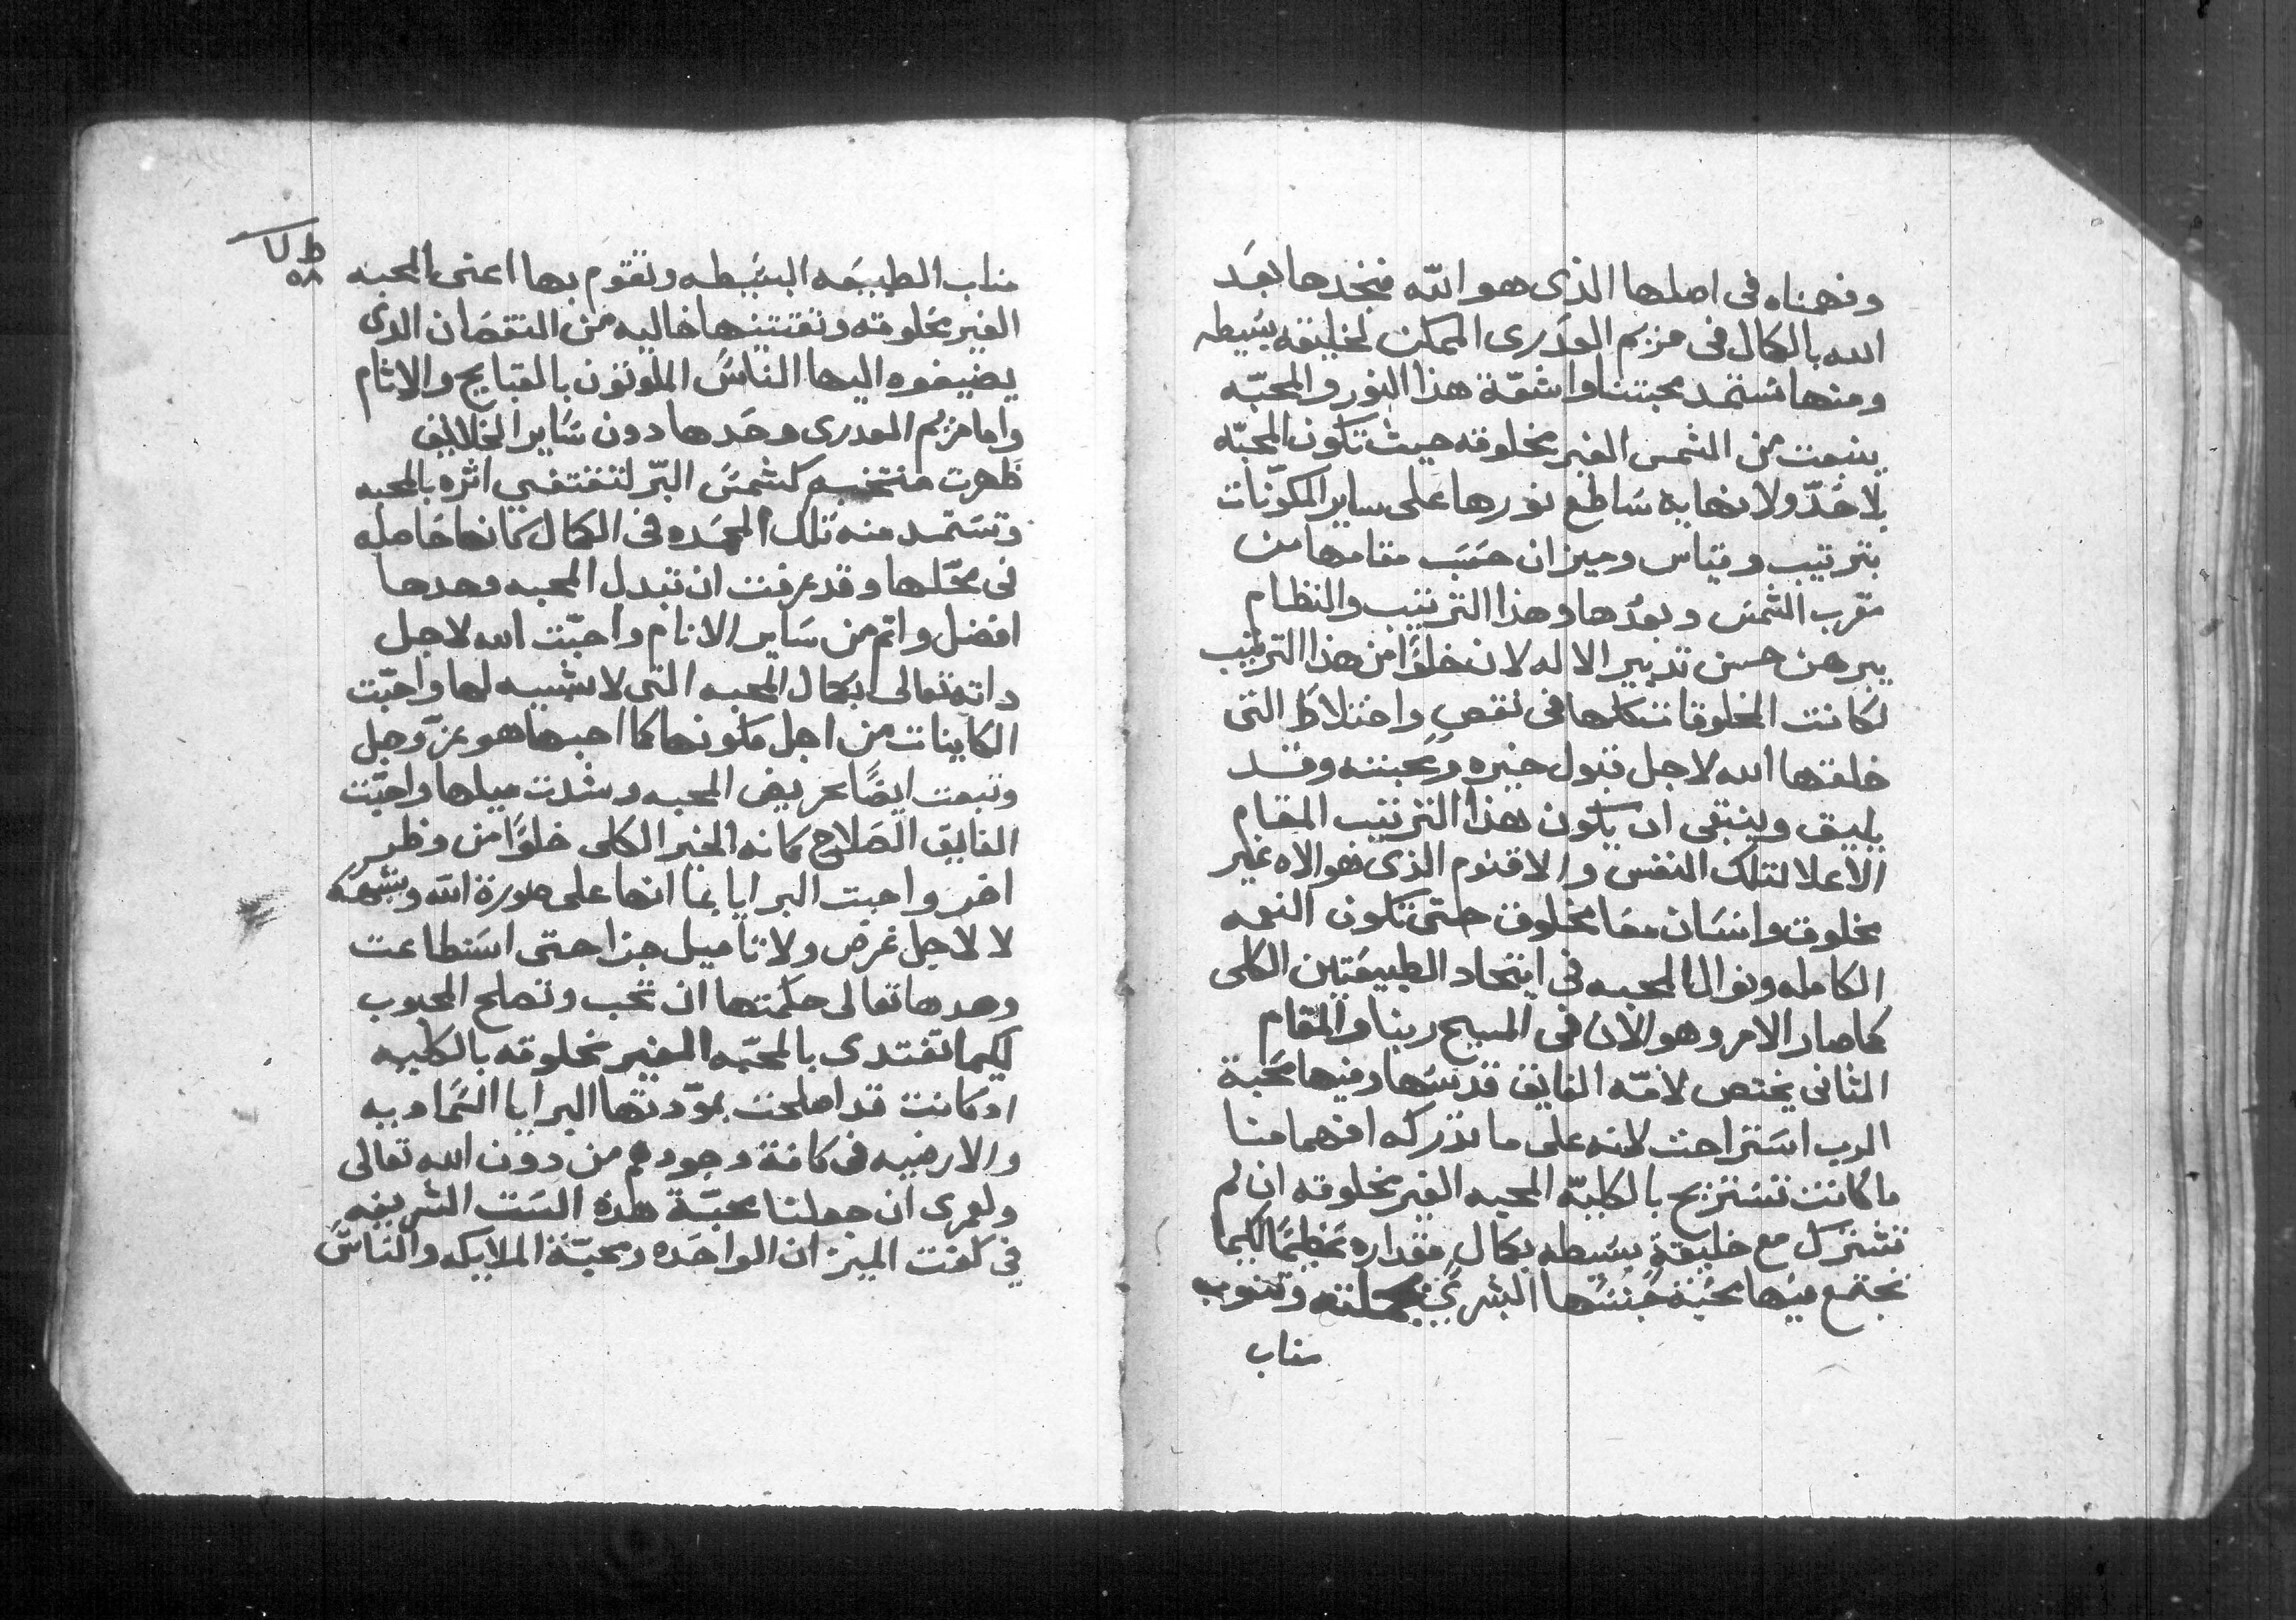 وفهمناه فى اصلها الذى هو الله فنجدها بعد
الله بالكمال فى مريم العذرى الممكن لخليقه بسيطه
ومنها نستمد محبتنا واشعّة هذا النور والمحبّه
ينبعث من الشمس الغير مخلوقه حيث تكون المحبّه
بلا حَدّ ولا نهايه سَاطع نورها على ساير المكوّنات
بترتيب وقياس وميزان حسَبَ مقامها من
مقرب الشمس وبعدُها وهذا الترتيب والنظام
يبرهن حسن تدبير الاله لان خلوًا من هذا الترتيب
لكانت المخلوقات كلها فى نقصٍ واختلاط التى
خلقتها الله لاجل قبول خيره ومحبته وقد
يليق وينبغى ان يكون بهذا الترتيب المقام
الاعلا لتلك النفس والاقنوم الذى هو الاه غير
مخلوق وانسَان معًا مخلوق حتى تكون النعمه
الكامله ونوال المحبه فى اتحاد الطبيعَتين الكلى
كما صار الامر وهو الان فى المسيح ربنا والمقام
الثانى يختص لامّه الفايق قدسَها وفيها محبة
الرب استراحت لانه على ما ندركه افهمامنا
ما كانت تستريح بالكليّه المحبه الغير مخلوقه ان لم
تشترك مع خليقةٍ بسَيطه بكمالٍ مقداره عظيمًا لكيما
تجتمع فيها محبّة جُنسُها البشرىّ بجملته وتنوب
مناب
ط ل
٥٨
مناب الطبيعَه البسَيطه وتقوم بها اعنى المحبه
الغير مخلوقه وتقتنيها خاليه من النقصَان الذى
يضيفوه اليها الناسُ الملوثون بالقبايح والاثام
واما مريم العدرى وحَدها دون سَاير الخلايق
ظهرت منتخبه كشمسَ البرّ لتقتفي اثره بالمحبه
وتسَتمد منه تلك المجمَده فى الكمال كمانها حَامله
فى محّلها وقد عرفت ان تبدل المحبه وحدها
افضل واتم من سَاير الانام واحبّت الله لاجل
داته تعالى بكمال المحبه التى لا شبيه لها واحبّت
الكاينات من اجل مكونها كما احبها هو عزّ وجل
وتبعت ايضًا تحريض المحبه وشدت ميلها واحبّت
الفايق الصَلاح كمانه الخير الكلى خلوًا من وطر
اخر واحبت البرايا بما انها على صورة الله وبشبهه
لا لاجل غرض ولا تاميل جزا حتى استطاعت
وحدها تعالى حكمتها ان تحب وتصلح المحبوب
لكيما تقتدى بالمحبّه الغير مخلوقه بالكليه
اد كانت قد اصلحت بموّدتها البرايا السَماويه
والارضيه فى كافة وجودهم من دون الله تعالى
ولعمرى ان جعلنا محبّة هذه السَت الشريفه
في كفت الميزان الواحَده ومحبّة الملايكه والناسَ